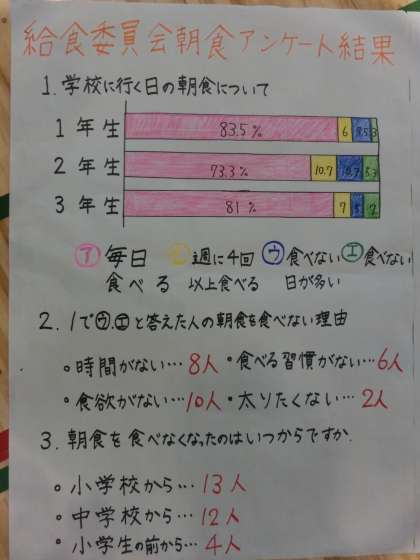 給食委員会朝食アンケート結果
1.学校に行く日の朝食について
1年生 83.5% 6 8.5 3
2年生 73.3% 10.7 10.7 5.3
3年生 81% 7 5 7
ア 毎日 イ 週に4回 ウ 食べない エ 食べない
食べる 以上食べる 日が多い
2.1でウ.エと答えた人の朝食を食べない理由
・時間がない…8人・食べる習慣がない…6人
・食欲がない…10人・太りたくない…2人
3.朝食を食べなくなったのはいつからですか.
・小学校から…13人
・中学校から…12人
・小学生の前から…4人